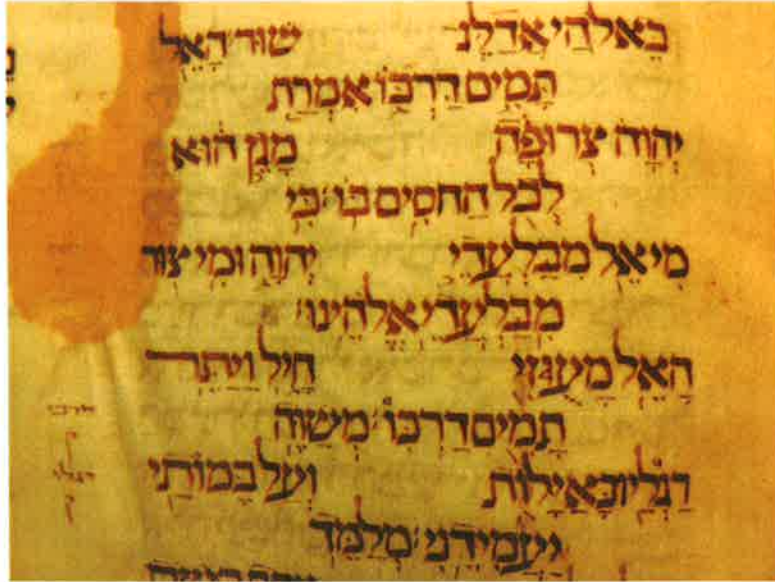 בֵּאלֹהַי אֲדַלֶּג שׁוּר׃ הָאֵל
תָּמִים דַּרְכּוֹ אִמְרַת
יְהוָה צְרוּפָה מָגֵן הוּא
לְכֹל הַחֹסִים בּוֹ׃ כִּי
מִי אֵל מִבַּלְעֲדֵי יְהוָה וּמִי צוּר
מִבַּלְעֲדֵי אֱלֹהֵינוּ׃
הָאֵל מָעוּזִּי חָיִל וַיַּתֵּר
תָּמִים דַּרְכּוֹ׃ מְשַׁוֶּה
דרכי
ק
רַגְלָיו כָּאַיָּלוֹת וְעַל בָּמוֹתַי
רגלי
ק
יַעֲמִידֵנִי׃ מְלַמֵּד